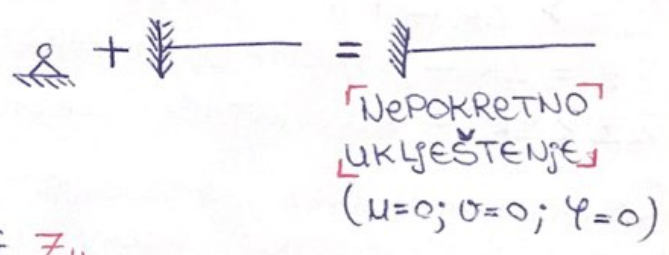 + =
NEPOKRETNO
UKLJEŠTENJE
(u=0; v=0; φ=0)
= Zu